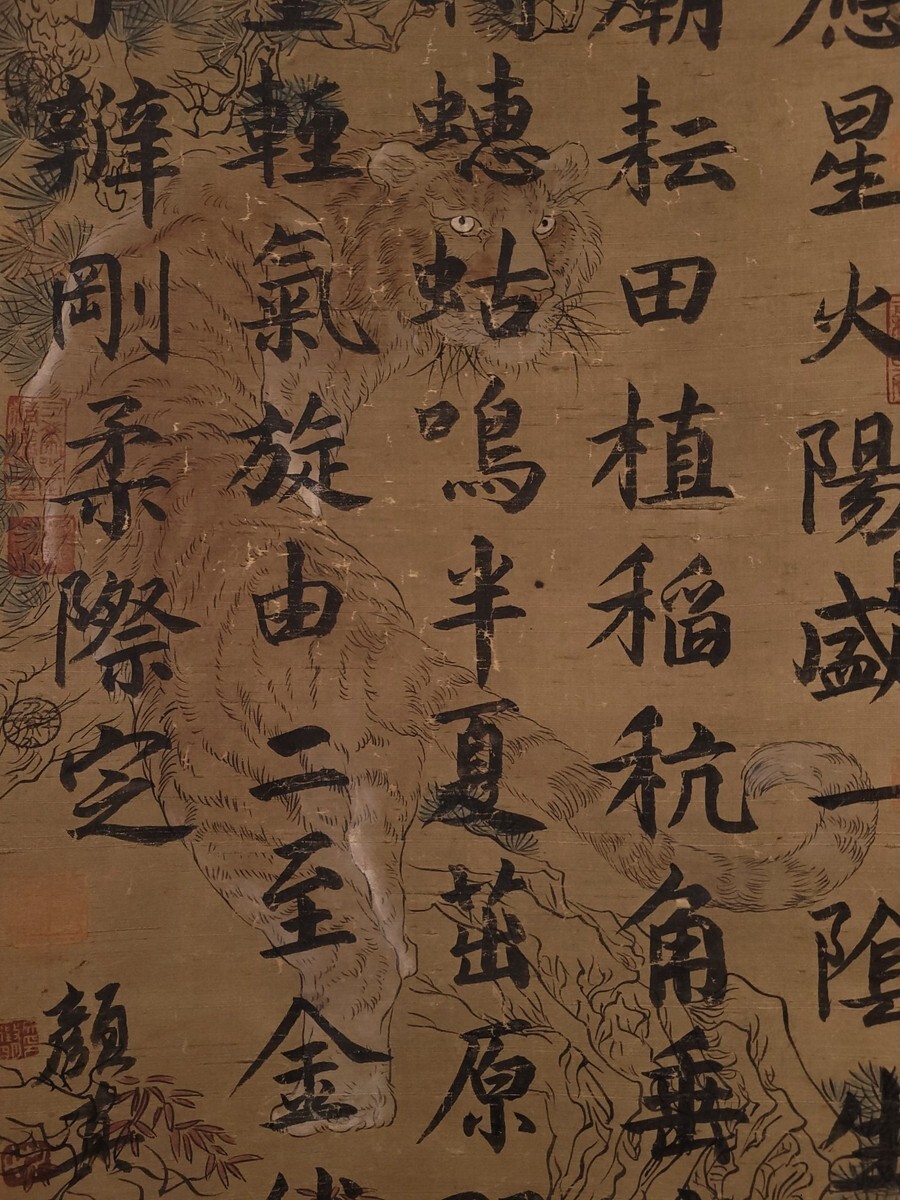 應星火陽盛一陰生
耘田植稻秔角垂
蟪蛄鳴半夏茁原
輕氣旋由二至金
辨剛柔際定
顏真